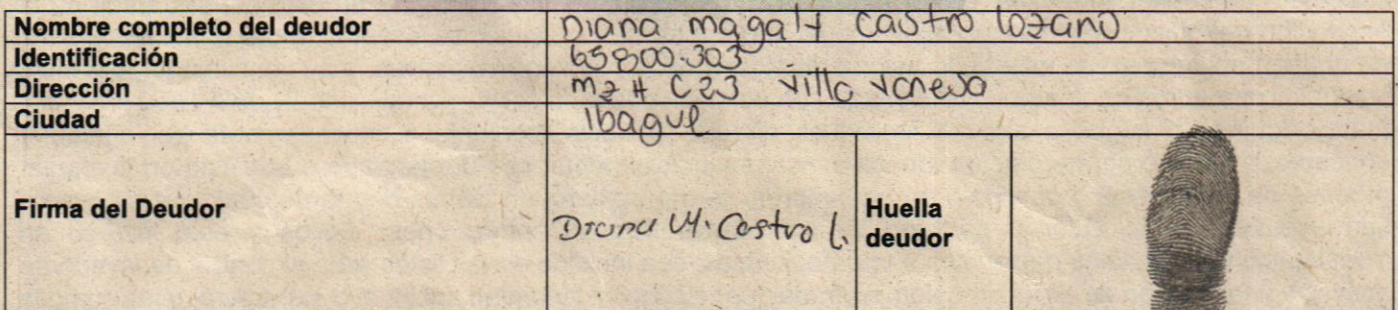 Nombre completo del deudor Diana magaly castro lozano
Identificación 65800.303
Dirección mz H C23 villa vanesa
Ciudad Ibague
Firma del Deudor Diana M. Castro L. Huella deudor